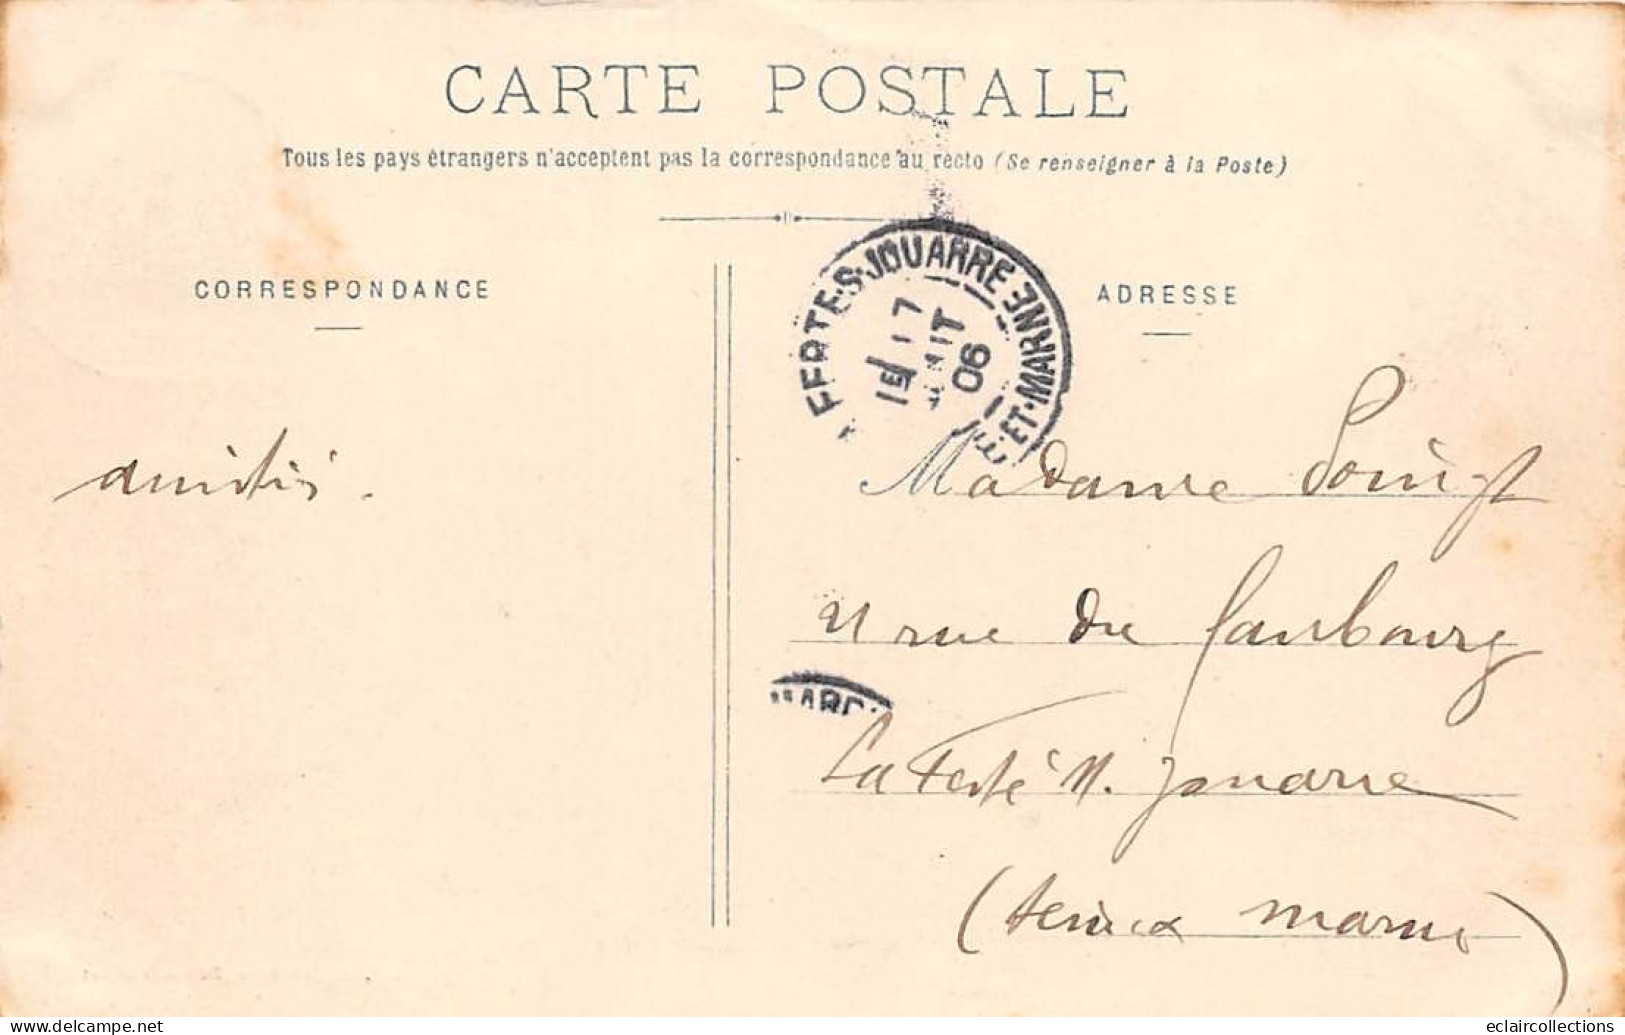 CARTE POSTALE
Tous les pays étrangers n'acceptent pas la correspondance au recto (Se renseigner à la Poste)
CORRESPONDANCE
ADRESSE
FERTE-S-JOUARRE
ET-MARNE
15 17
06
amitiés.
Madame
rue du faubourg
La Ferté s. Jouarre
(seine & marne)
www.delcampe.net
eclaircollections